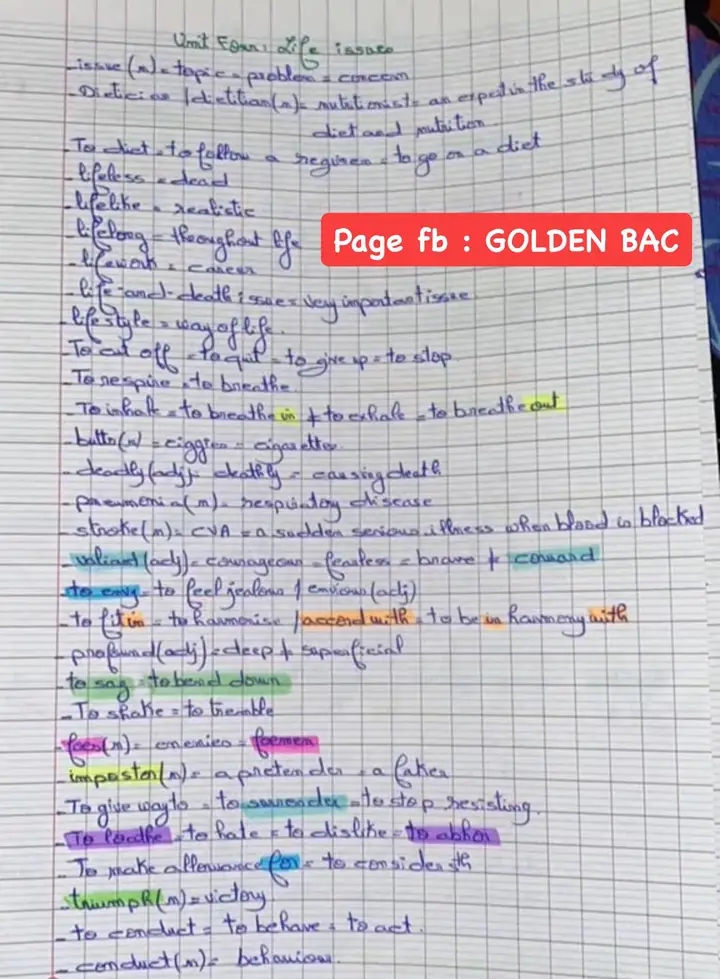 Unit Four: Life issues
- issue (n) = topic = problem = concern
- Dietician / dietitian (n) = nutritionist = an expert in the study of
diet and nutrition
- To diet = to follow a regimen = to go on a diet
- lifeless = dead
- lifelike = realistic
- lifelong = throughout life
Page fb : GOLDEN BAC
- lifework = career
- life-and-death issue = very important issue
- lifestyle = way of life.
- To cut off = to quit = to give up = to stop
- To respire = to breathe.
- To inhale = to breathe in ≠ to exhale = to breathe out
- butts (n) = ciggies = cigarettes.
- deadly (adj) = deathly = causing death
- pneumonia (n) = respiratory disease
- stroke (n) = CVA = a sudden serious illness when blood is blocked
- valiant (adj) = courageous = fearless = brave ≠ coward
- to envy = to feel jealous / envious (adj)
- to fit in = to harmonise / accord with = to be in harmony with
- profound (adj) = deep ≠ superficial
- to sag = to bend down
- To shake = to tremble
- foes (n) = enemies = foemen
- imposter (n) = a pretender = a faker
- To give way to = to surrender = to stop resisting.
- To loathe = to hate = to dislike = to abhor
- To make allowance for = to consider sth
- triumph (n) = victory
- to conduct = to behave = to act.
- conduct (n) = behaviour.